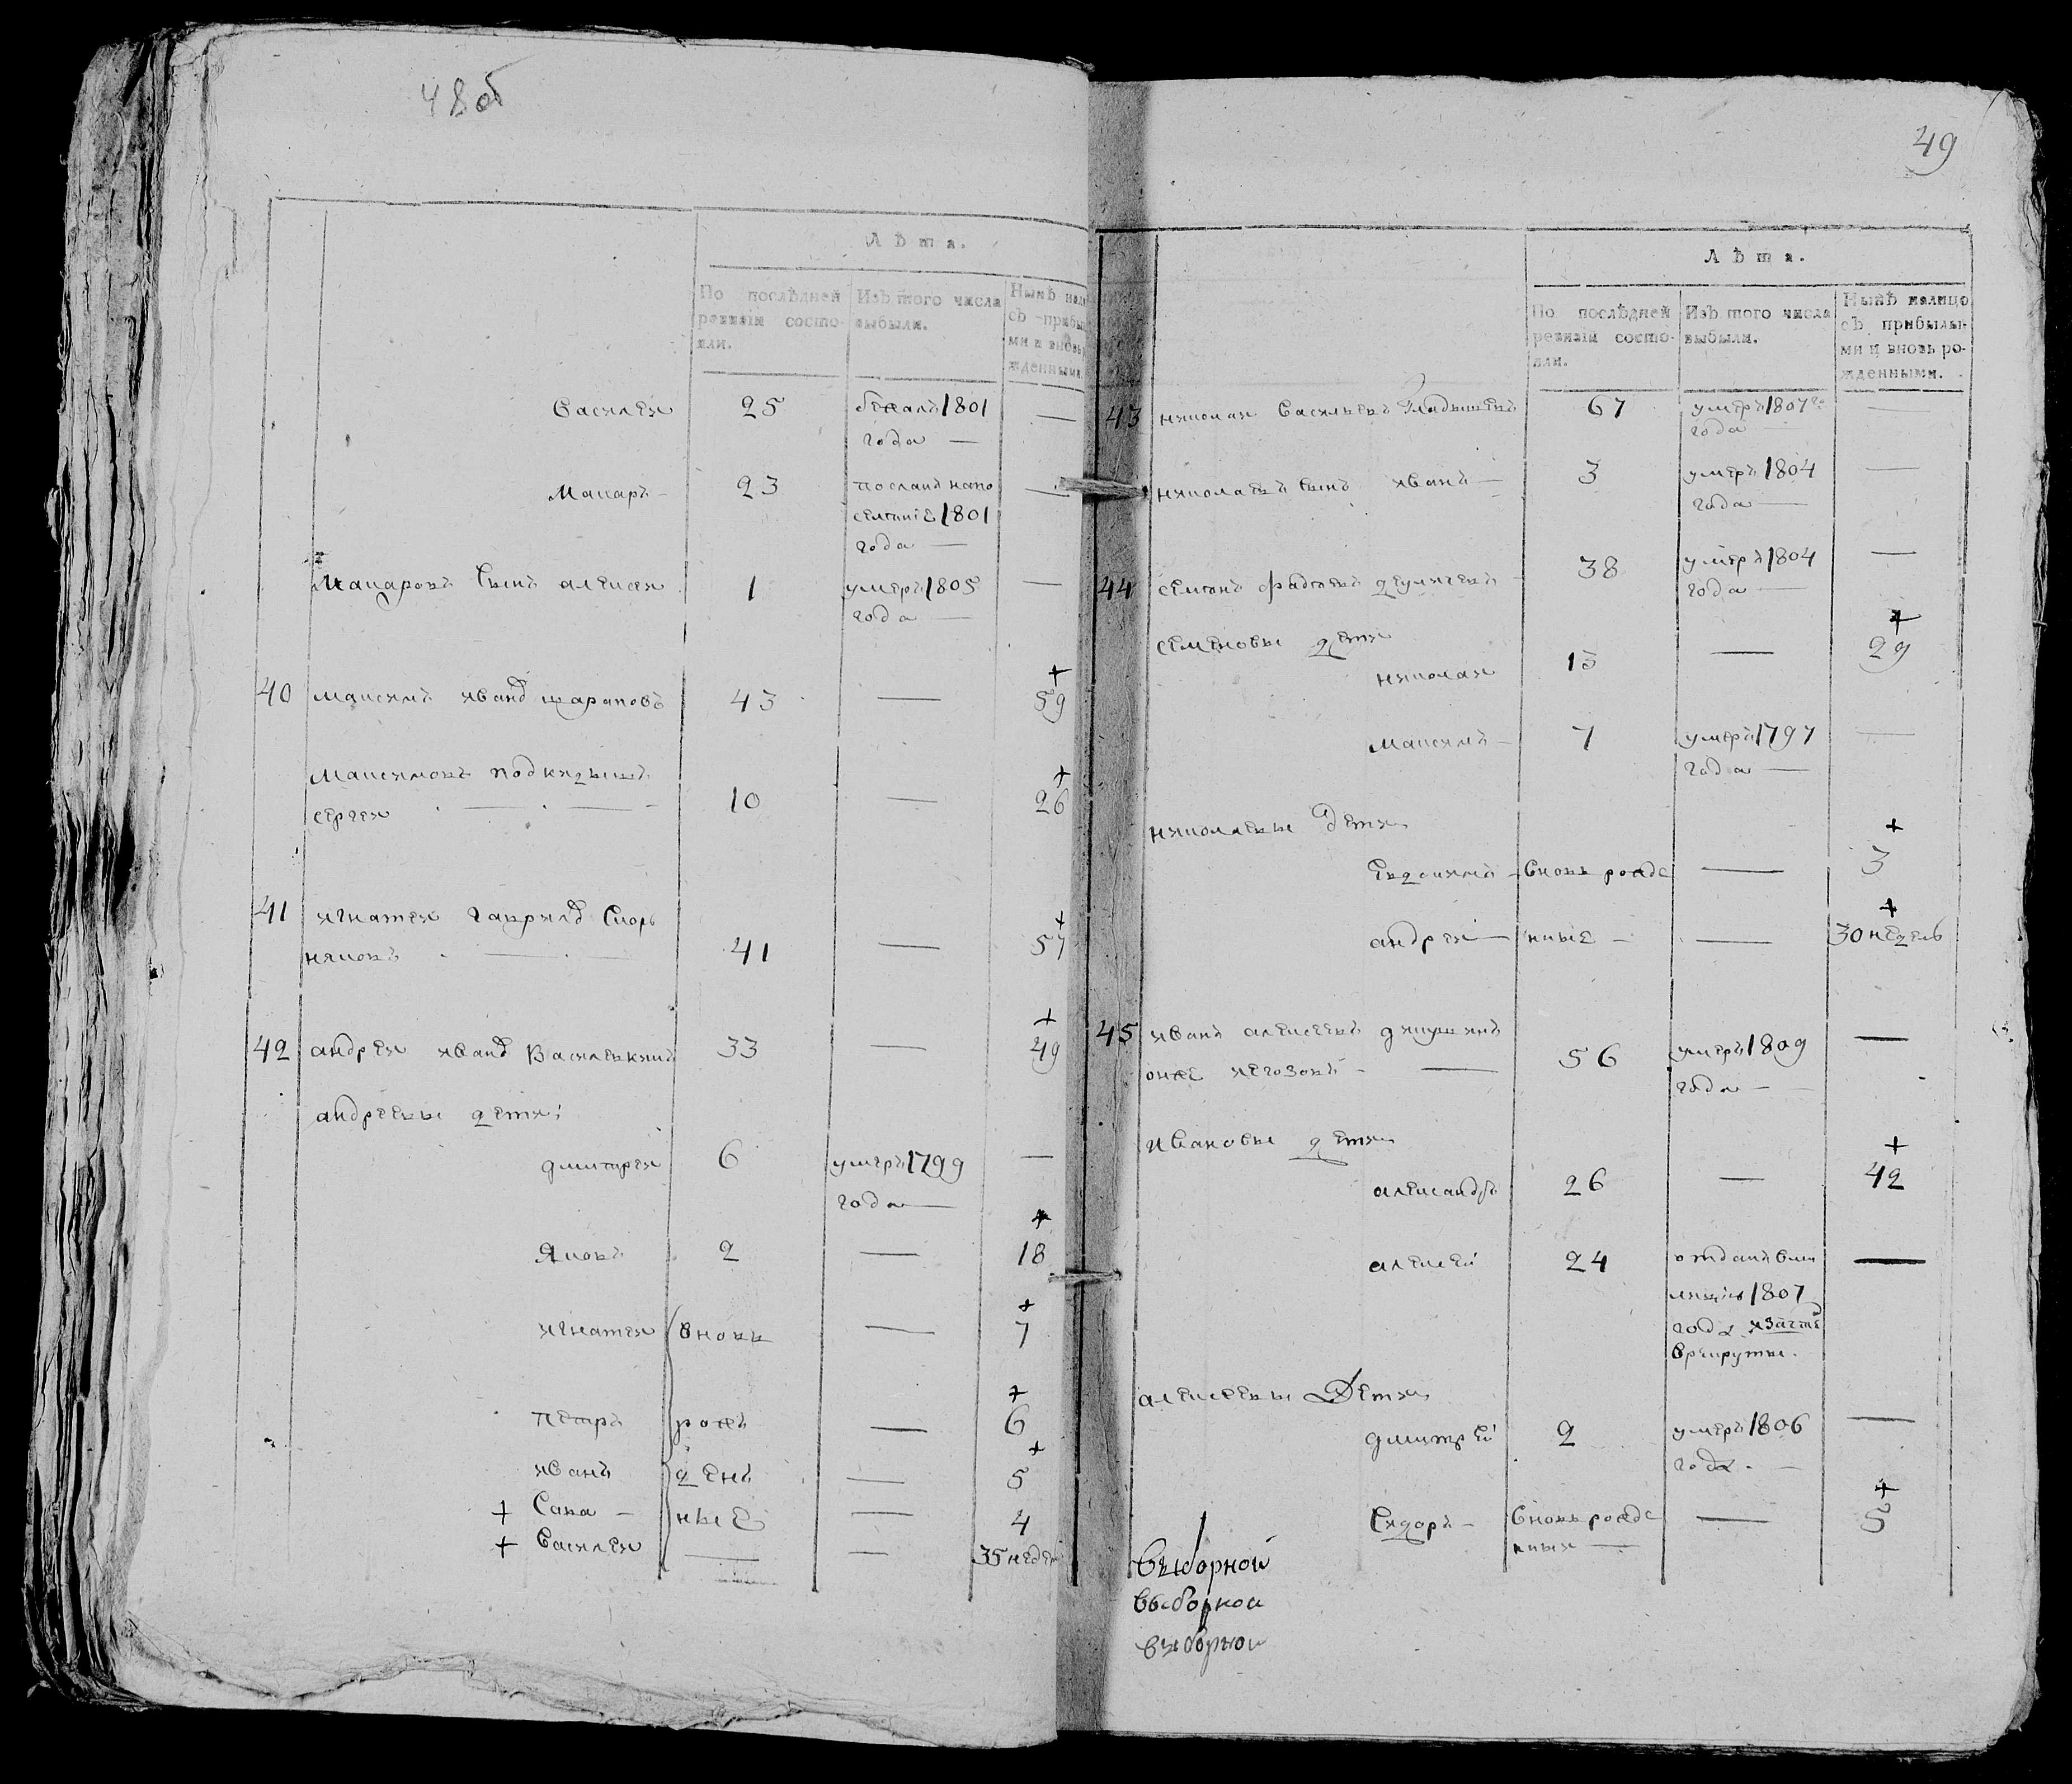 48об
Лѣта.
По послѣдней
ревизіи состо-
яли.
Изъ того числа
выбыли.
Нынѣ нали
съ прибы
ми и вновь
жденными.
Василеи 25 бежалъ 1801 —
года —
Макаръ — 23 посланъ напо —
селение 1801
года —
Макаровъ сынъ алексеи 1 умеръ 1805 —
года —
+
40 максимъ иванов шараповъ 43 — 59
максимовъ подкидышъ +
сергеи — — 10 — 26
41 игнатеи гаврилов +
няковъ — — 41 — 57
+
42 андреи иванов 33 — 49
андреевы дети
дмитреи 6 умеръ 1799 —
года —
+
Яковъ 2 — 18
+
игнатеи вновь — 7
+
петръ рож — 6
+
иванъ денъ — 5
+ Сава — ные — 4
+ Василеи — — 35 недел
49
Лѣта.
По послѣдней
ревизіи состо-
яли.
Изъ того числа
выбыли.
Нынѣ налицо
съ прибылы-
ми и вновь ро-
жденными.
43 николаи Васильевъ Гладышевъ 67 умеръ 1807 го —
года —
николаевъ сынъ иванъ — 3 умеръ 1804 —
года —
44 семенъ 38 умеръ 1804 —
года —
семеновы дети +
николаи 13 — 29
максимъ — 7 умеръ 1797 —
года —
николаевы дети +
Евдокимъ — вновь рожде — 3
+
андреи — нные — — 30 недель
45 иванъ алексеевъ —
онже — 56 умеръ 1809
года —
ивановы дети +
александръ 26 — 42
алексеи 24 отданъ вми —
лицию 1807
года изачте
врекруты.
алексеевы Дети
дмитреи 2 умеръ 1806 —
года. —
+
Сидоръ — вновь рожде — 5
нныи —
выборной
выборной
выборной